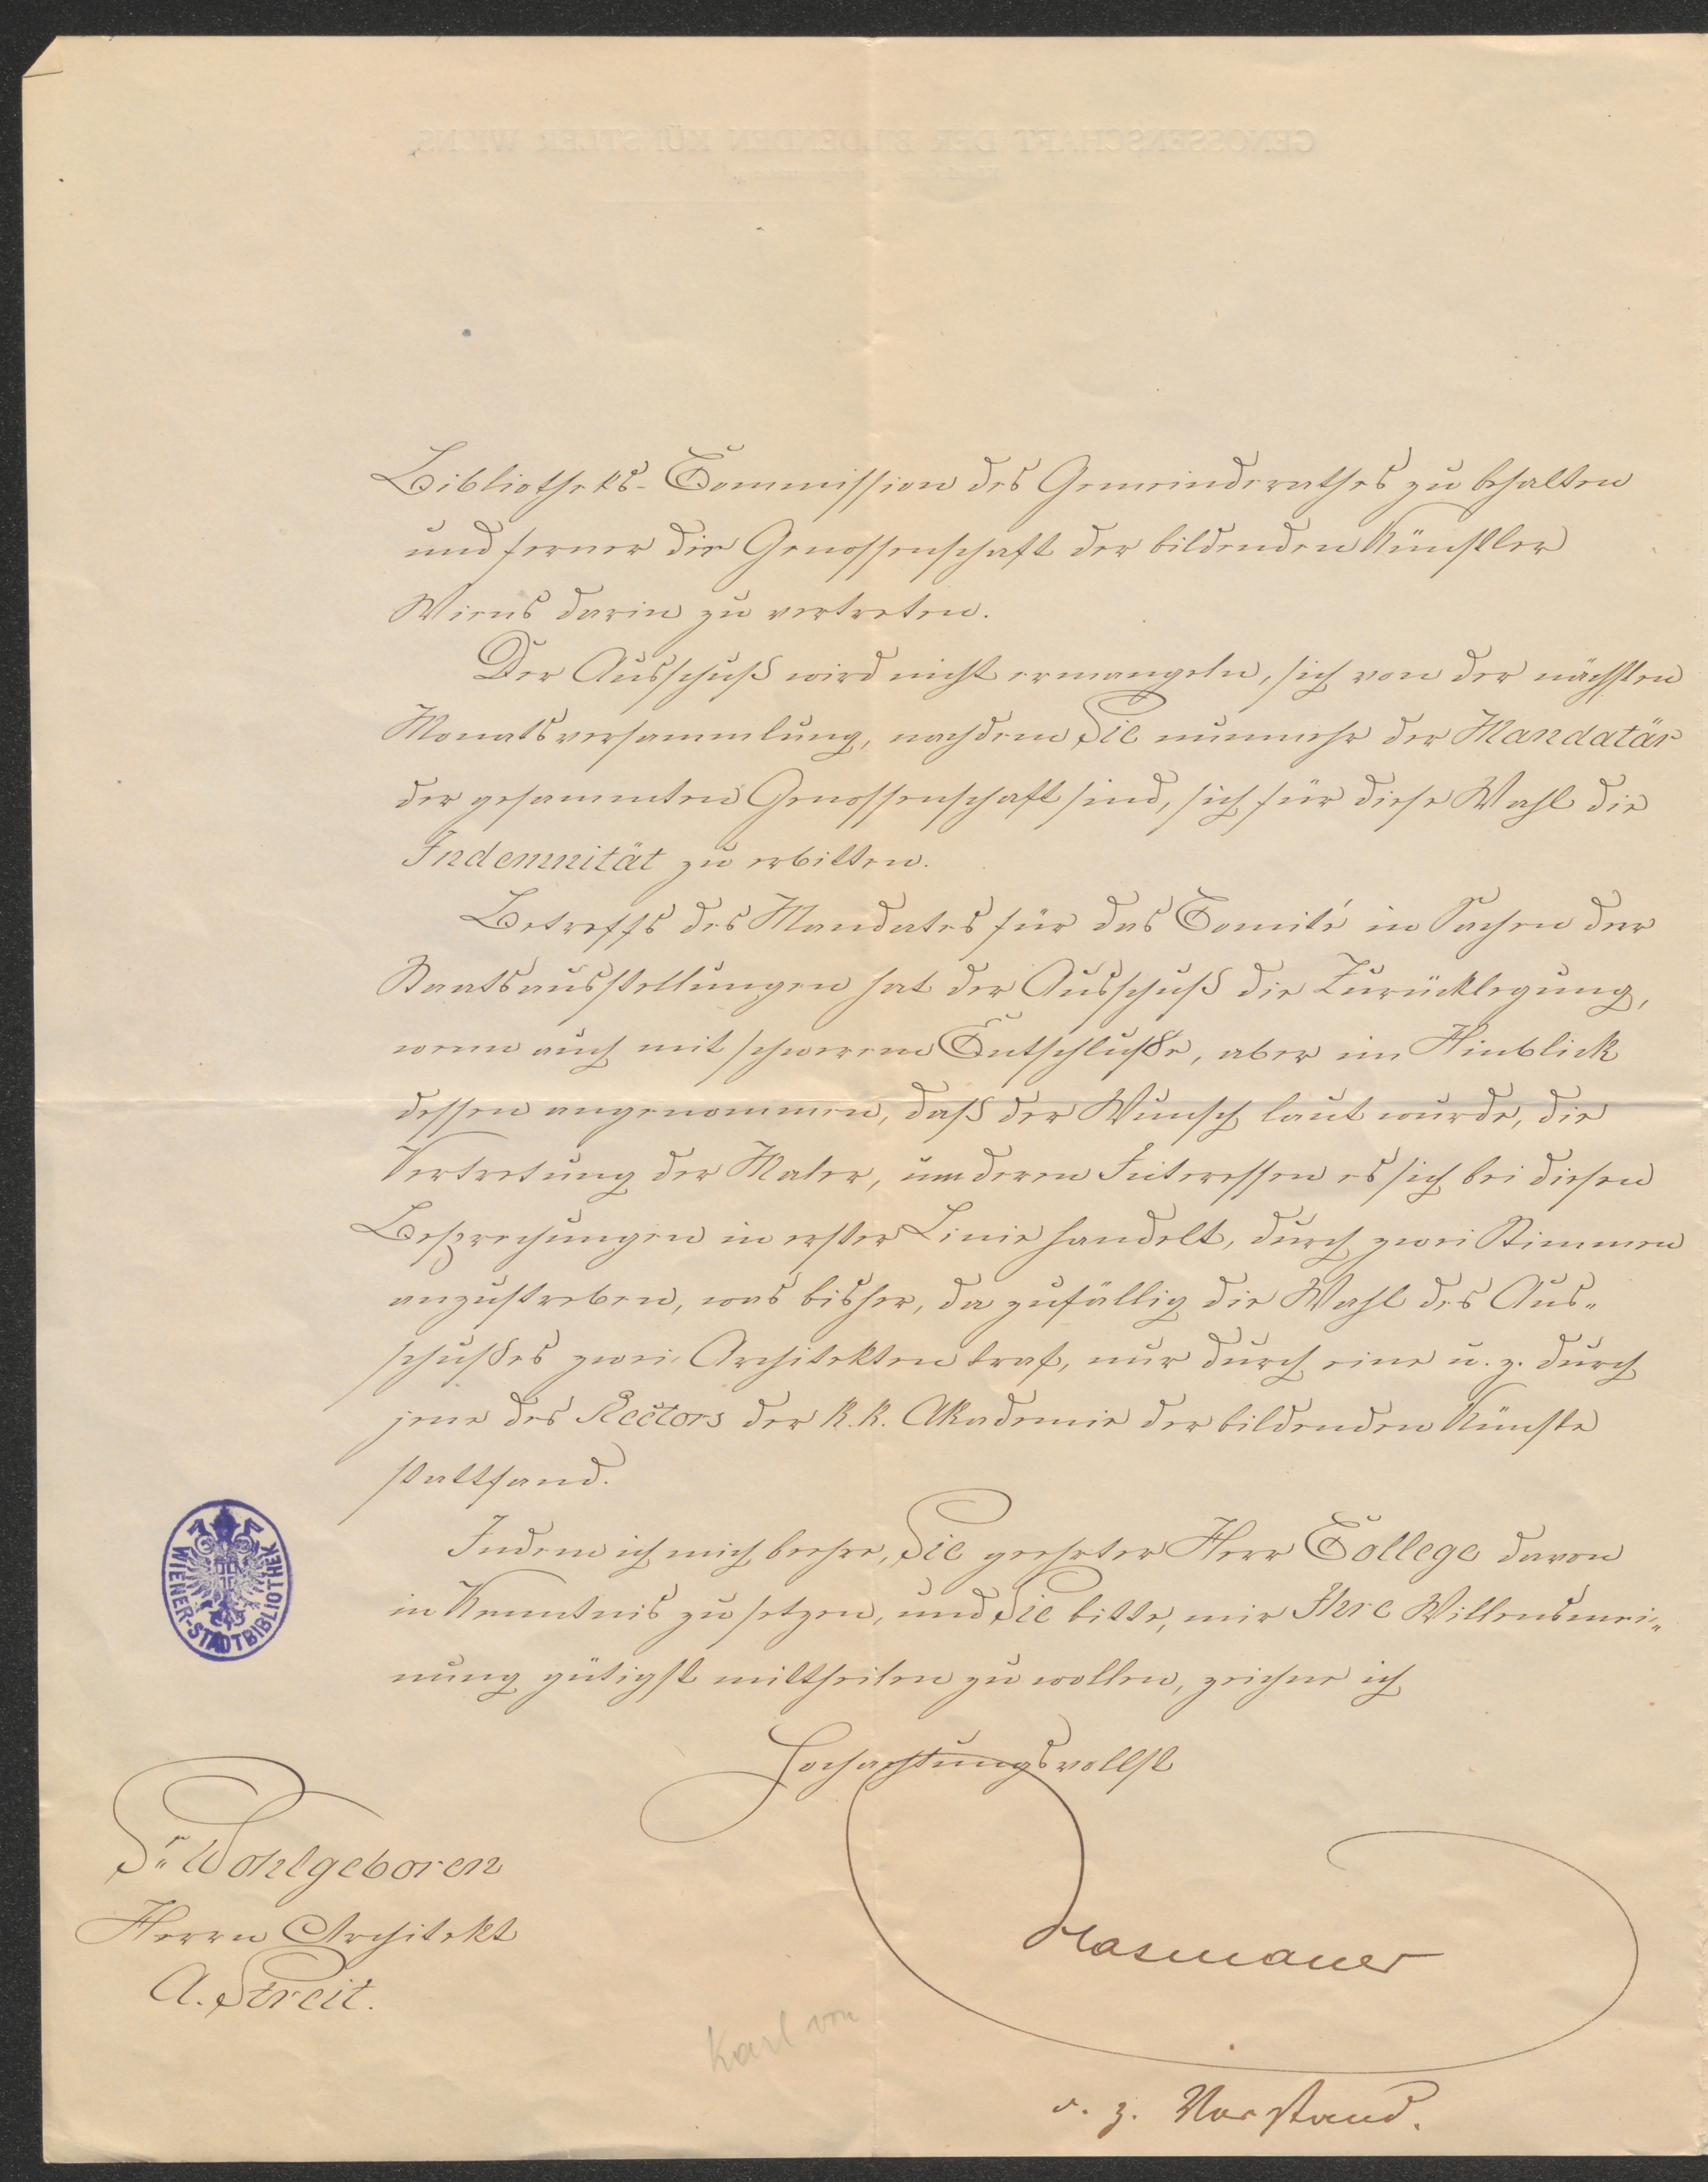 Bibliotheks-Commission des Gemeinderathes zu behalten
und ferner die Genossenschaft der bildenden Künstler
Wiens darin zu vertreten.
Der Ausschuß wird nicht ermangeln, sich von der nächsten
Monatsversammlung, nachdem Sie nunmehr der Mandatär
der gesammten Genossenschaft sind, sich für diese Wahl die
Indemnität zu erbitten.
Betreffs des Mandates für das Comité in Sachen der
Staatsausstellungen hat der Ausschuß die Zurücklegung,
wenn auch mit schwerem Entschluße, aber im Hinblick
dessen angenommen, daß der Wunsch laut wurde, die
Vertretung der Maler, um deren Interessen es sich bei diesen
Besprechungen in erster Linie handelt, durch zwei Stimmen
anzustreben, was bisher, da zufällig die Wahl des Aus„
schußes zwei Architekten traf, nur durch eine u. z. durch
jene des Rectors der k. k. Akademie der bildenden Künste
stattfand.
Indem ich mich beehre, Sie geehrter Herr College davon
in Kenntnis zu setzen, und Sie bitte, mir Ihre Willensmei„
nung gütigst mittheilen zu wollen, zeichne ich
Hochachtungsvollst
Sr. Wohlgeboren
Herrn Architekt
A. Streit.
Hasenauer
Karl von
d. z. Vorstand.
WIENER-STADTBIBLIOTHEK
GENOSSENSCHAFT DER BILDENDEN KÜNSTLER WIENS.